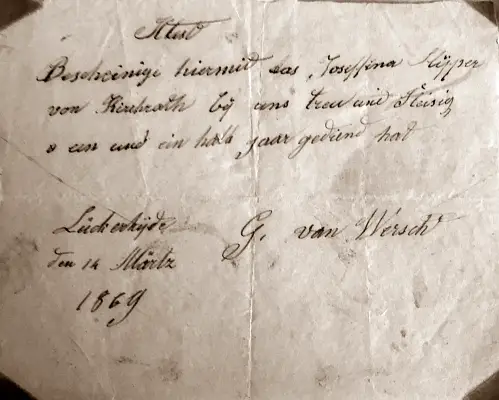 Atest
Bescheinige hiermit das Joseffina Slÿper
von Kirchrath bÿ uns treu und fleisig
een und ein halb jaar gediend hat
Lückerheÿde
den 14 Märtz
G. van Wersch
1869